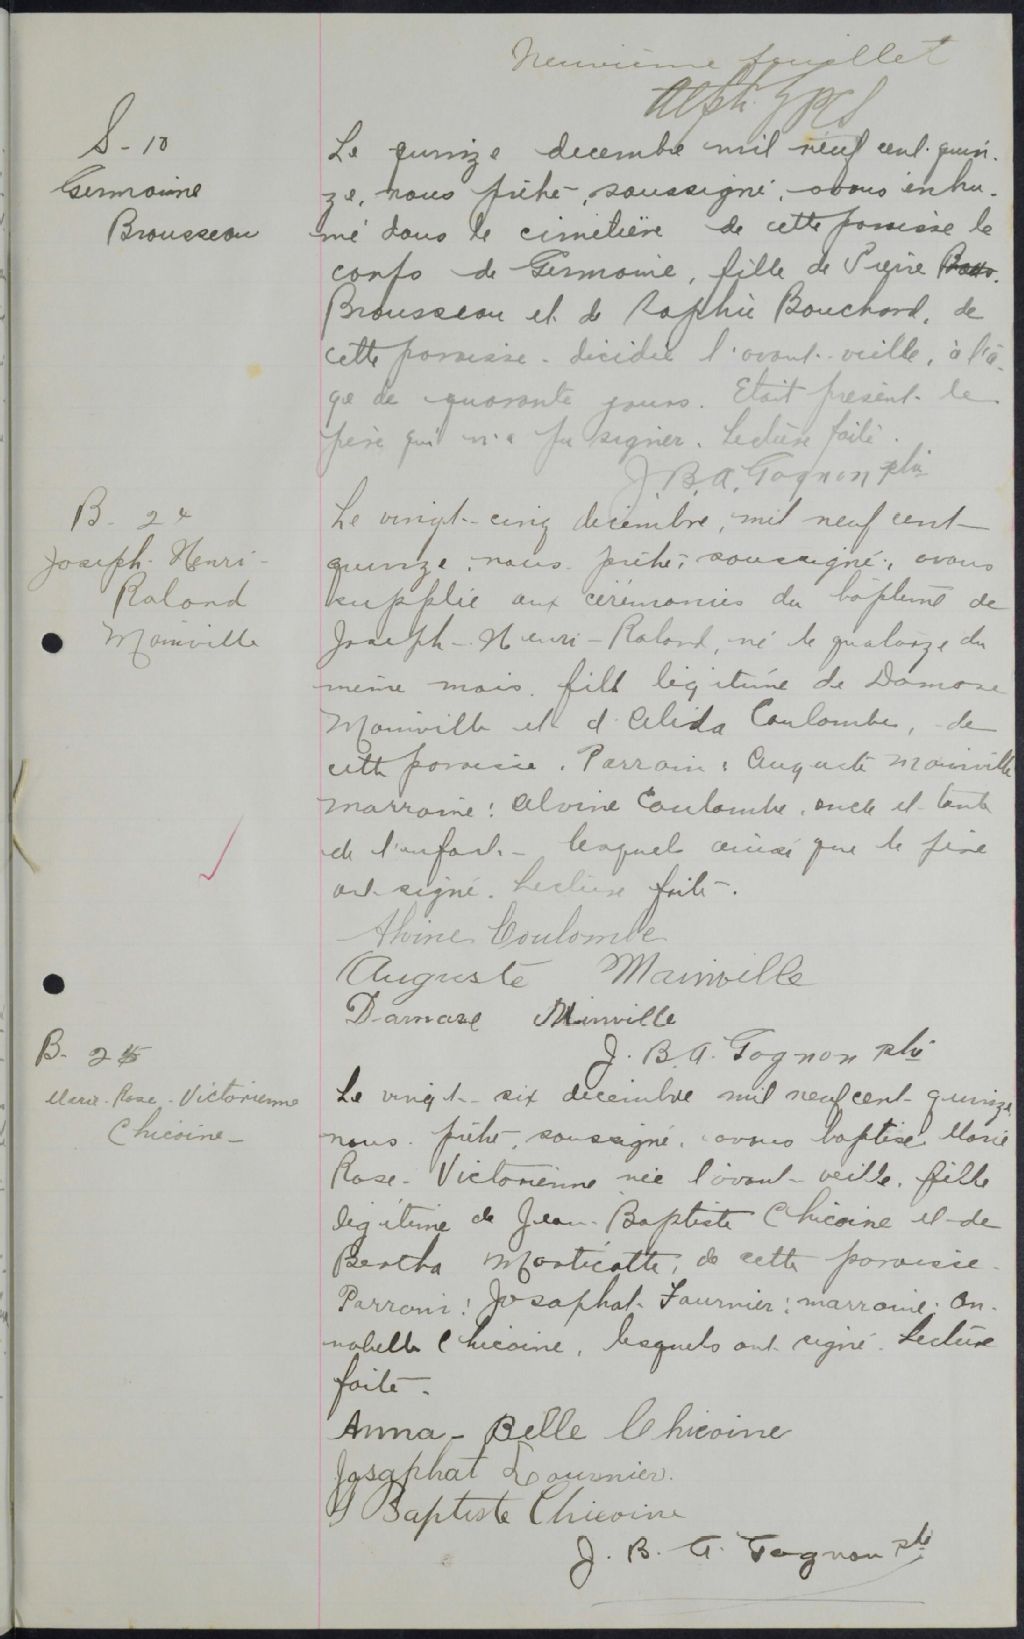 Neuvième feuillet
S - 10
Germaine
Brousseau
Le quinze decembre mil neuf cent quin-
ze, nous prêtre soussigné, avons inhu-
mé dans le cimetière de cette paroisse le
corps de Germaine, fille de Pierre
Brousseau et de Sophie Bouchard, de
cette paroisse - décidée l'avant-veille, à l'â-
ge de quarante jours. Etait présent le
père qui n'a pu signer. Lecture faite.
J. B. A. Gagnon ptre
B - 24
Joseph-Henri-
Roland
Mainville
Le vingt-cinq décembre, mil neuf cent
quinze, nous prêtre soussigné, avons
supplié aux cérémonies du baptême de
Joseph-Henri-Roland, né le quatorze du
même mois, fils légitime de Damase
Mainville et d'Alida Coulombe, de
cette paroisse. Parrain: Auguste Mainville
Marraine: Alvine Coulombe, oncle et tante
de l'enfant - lesquels ainsi que le père
ont signé. Lecture faite.
Alvine Coulombe
Auguste Mainville
Damase Minville
J. B. A. Gagnon ptre
B - 25
Marie-Rose-Victorienne
Chicoine
Le vingt-six décembre mil neuf cent quinze,
nous prêtre soussigné, avons baptisé Marie
Rose-Victorienne née l'avant-veille, fille
légitime de Jean-Baptiste Chicoine et de
Bertha Monticotte, de cette paroisse.
Parrain: Josaphat Fournier; marraine: An-
nabelle Chicoine, lesquels ont signé. Lecture
faite.
Anna-Belle Chicoine
Josaphat Fournier.
J Baptiste Chicoine
J. B. A. Gagnon ptre